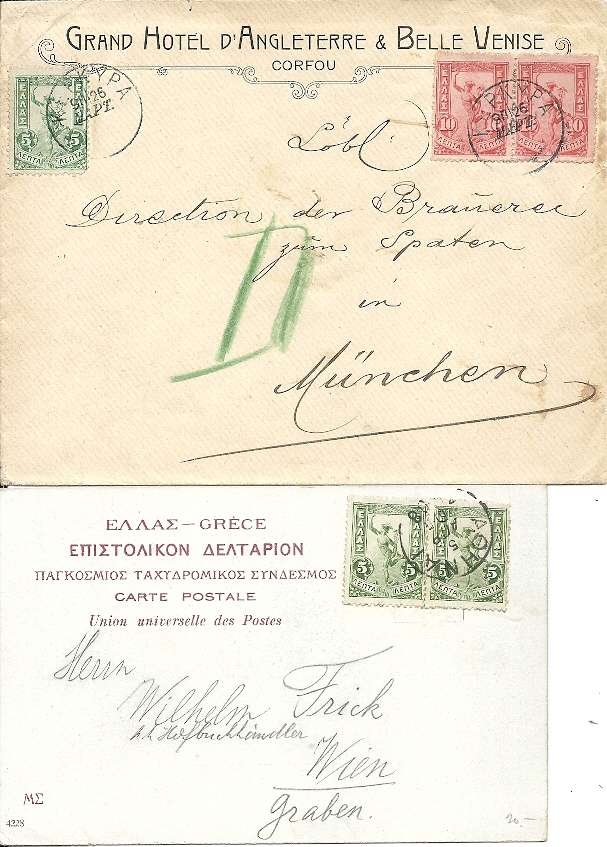 GRAND HOTEL D'ANGLETERRE & BELLE VENISE
CORFOU
ΕΛΛΑΣ
5 5
ΛΕΠΤΑ ΛΕΠΤΑ
ΚΕΡΚΥΡΑ
26
ΜΑΡΤ.
ΕΛΛΑΣ ΕΛΛΑΣ
10 10
ΛΕΠΤΑ ΛΕΠΤΑ
ΚΕΡΚΥΡΑ
26
ΜΑΡΤ.
Löbl
Direction der Brauerei
zum Spaten
in
München
D
ΕΛΛΑΣ – GRÈCE
ΕΠΙΣΤΟΛΙΚΟΝ ΔΕΛΤΑΡΙΟΝ
ΠΑΓΚΟΣΜΙΟΣ ΤΑΧΥΔΡΟΜΙΚΟΣ ΣΥΝΔΕΣΜΟΣ
CARTE POSTALE
Union universelle des Postes
ΕΛΛΑΣ ΕΛΛΑΣ
5 5 5 5
ΛΕΠΤΑ ΛΕΠΤΑ ΛΕΠΤΑ ΛΕΠΤΑ
ΑΘΗΝΑΙ
Herrn
Wilhelm Frick
k.k. Hofbuchhändler
Wien
Graben.
ΜΣ
4228
20.–